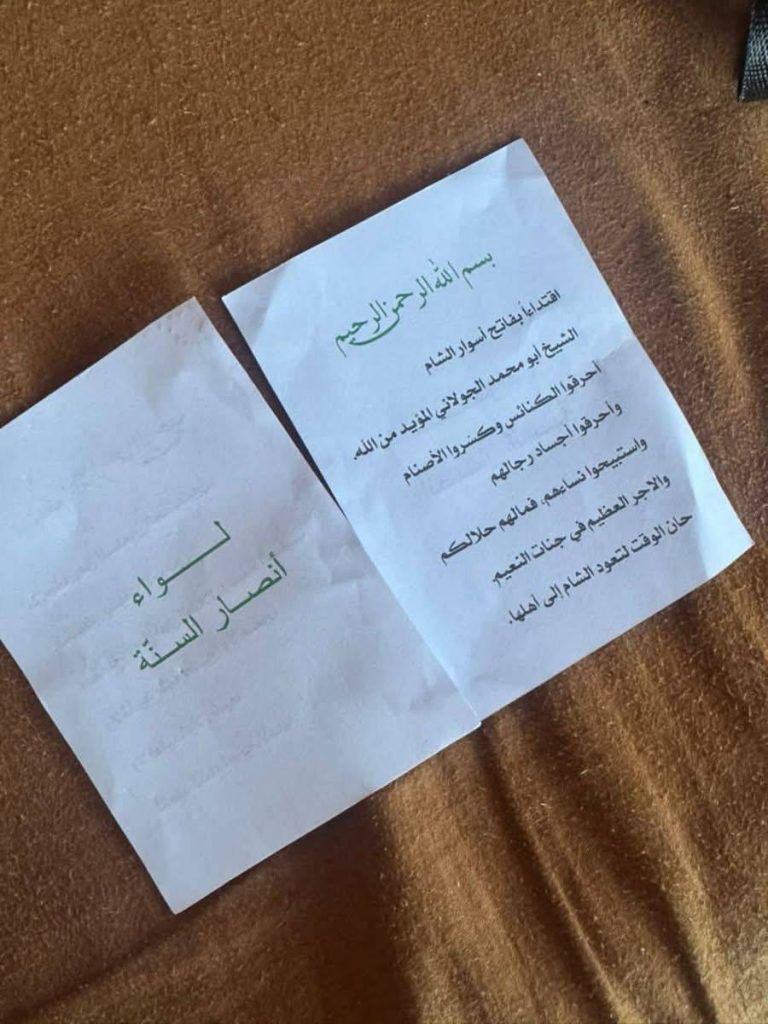 بسم الله الرحمن الرحيم
اقتداءاً بفاتح أسوار الشام
الشيخ أبو محمد الجولاني المؤيد من الله.
أحرقوا الكنائس وكسروا الأصنام
وأحرقوا أجساد رجالهم
واستبيحوا نساءهم، فمالهم حلالكم
والاجر العظيم في جنات النعيم.
حان الوقت لتعود الشام إلى أهلها.
لـــواء
أنصار السنّة